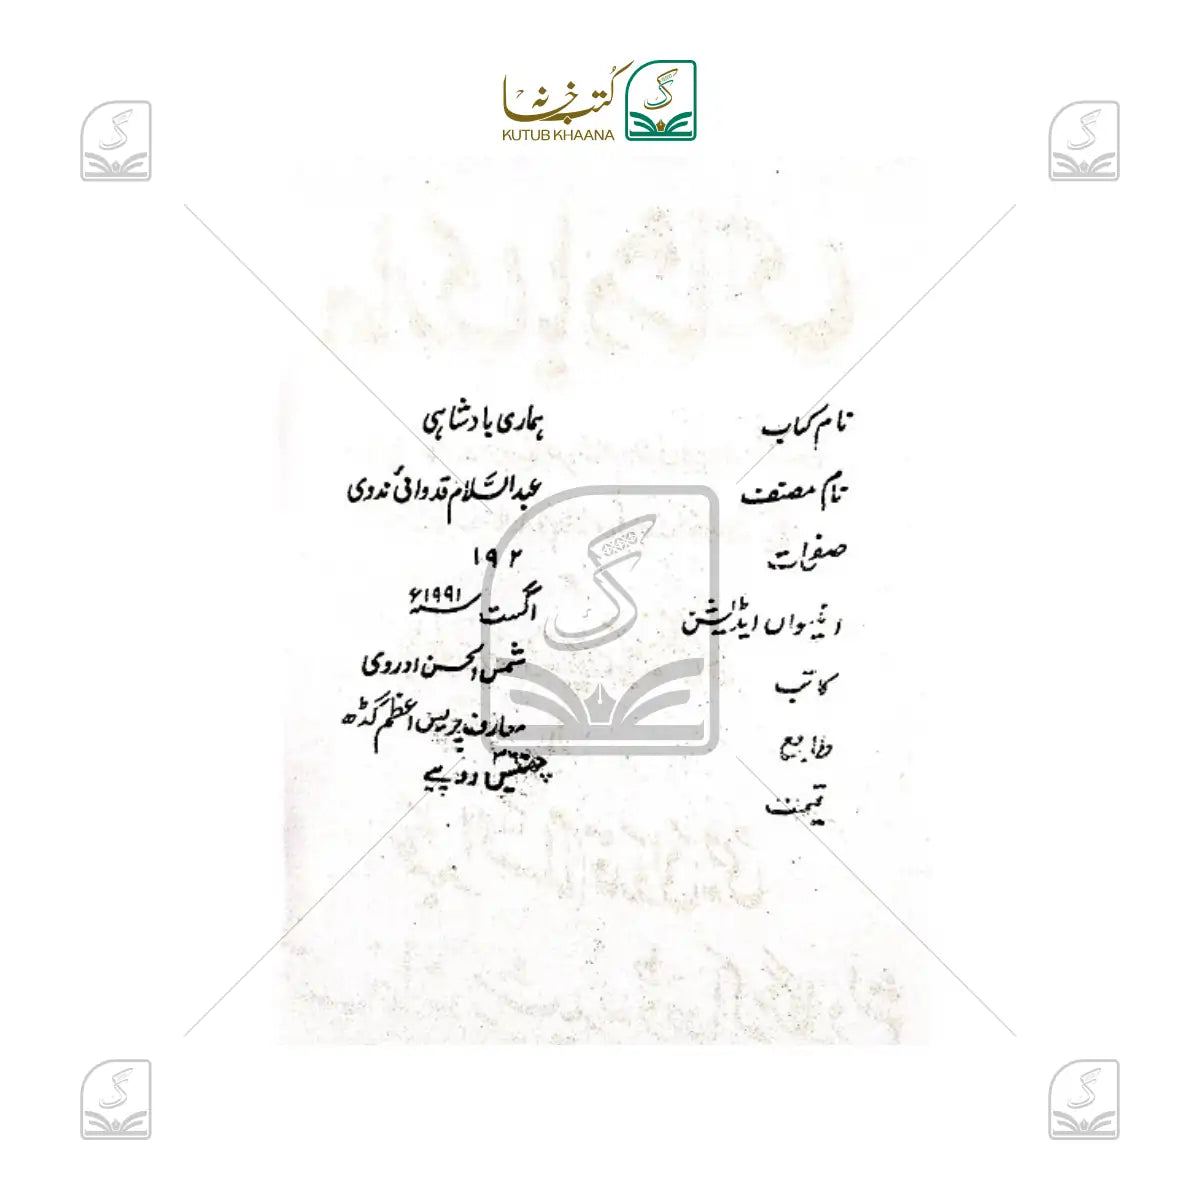 کتب خانہ
KUTUB KHAANA
نام کتاب ہماری بادشاہی
نام مصنف عبدالسّلام قدوائی ندوی
صفحات ۱۹۲
انیسواں ایڈیشن اگست ۱۹۹۱ء
کاتب شمس الحسن ادروی
طابع معارف پریس اعظم گڈھ
قیمت چھتیس روپیے